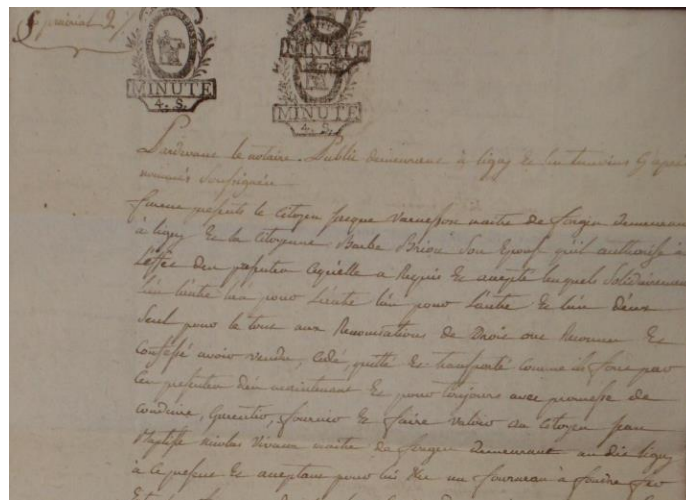 5 prairial 2
MINUTE
4. S.
MINUTE
MINUTE
4. S.
Pardevant le notaire Public demeurant à ligny et les temoins cy apres
nommés soussignés
furent présents le Citoyen Varnesson maitre de forges demeurant
à ligny et la Citoyenne Barbe Briou Son Epouse qu'il authorise à
L'effet des présentes laquelle a Requis et accepté lesquels Solidairement
L'un L'autre pour L'autre et L'un d'eux
Seul pour le tout aux Renonciations de Droit ont Reconnu et
Confessé avoir vendu, Cédé, quitté et transporté comme ils font par
Ces présentes dès maintenant et pour toujours avec promesse de
Conduire, Garentir, fournir et faire valoir au Citoyen Jean
Baptiste nicolas Vivaux maitre de forges Demeurant au dit ligny
à Ce présent et acceptant pour lui un fourneau à fondre fer